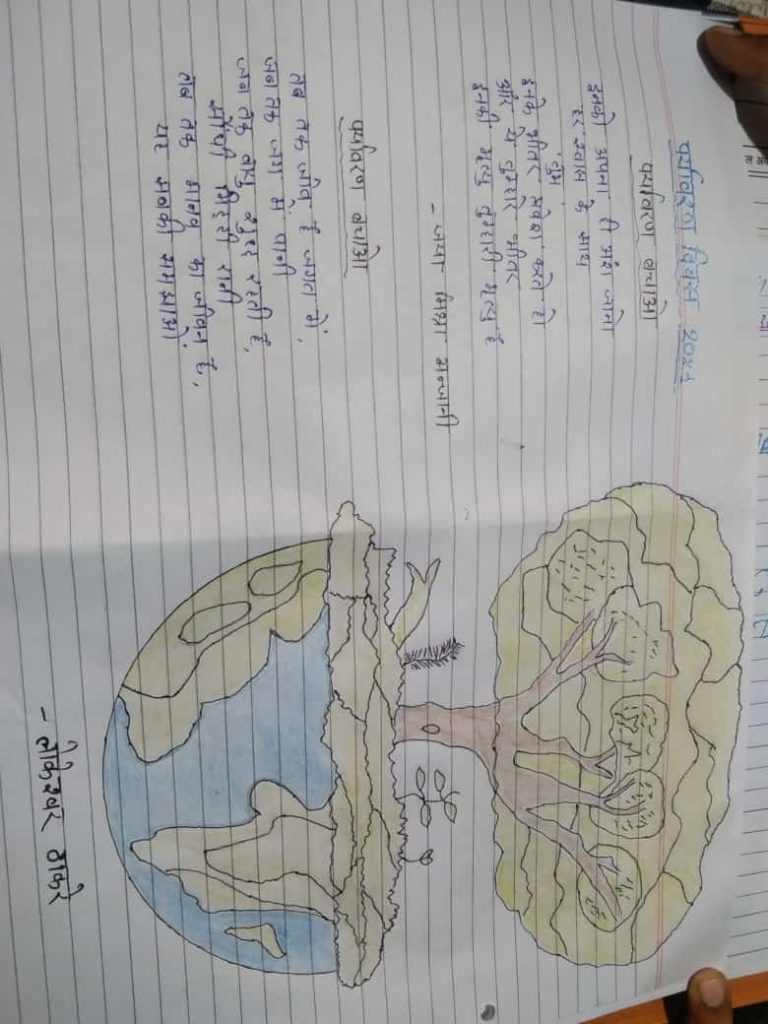 पर्यावरण दिवस २०२४
पर्यावरण बचाओ
इनको अपना ही अंश जानो
हर स्वास के साथ
तुम
इनके भीतर प्रवेश करते हो
और ये तुम्हारे भीतर
इनकी मृत्यु तुम्हारी मृत्यु है
- जया मिश्रा अन्जानी
पर्यावरण बचाओ
तब तक जीवन है जगत में,
जब तक जग में पानी
जब तक वायु शुद्ध रहती है,
सोंधी मिट्टी रानी
तब तक मानव का जीवन है,
यह सबको समझाओ
- लोकेश्वर ठाकरे